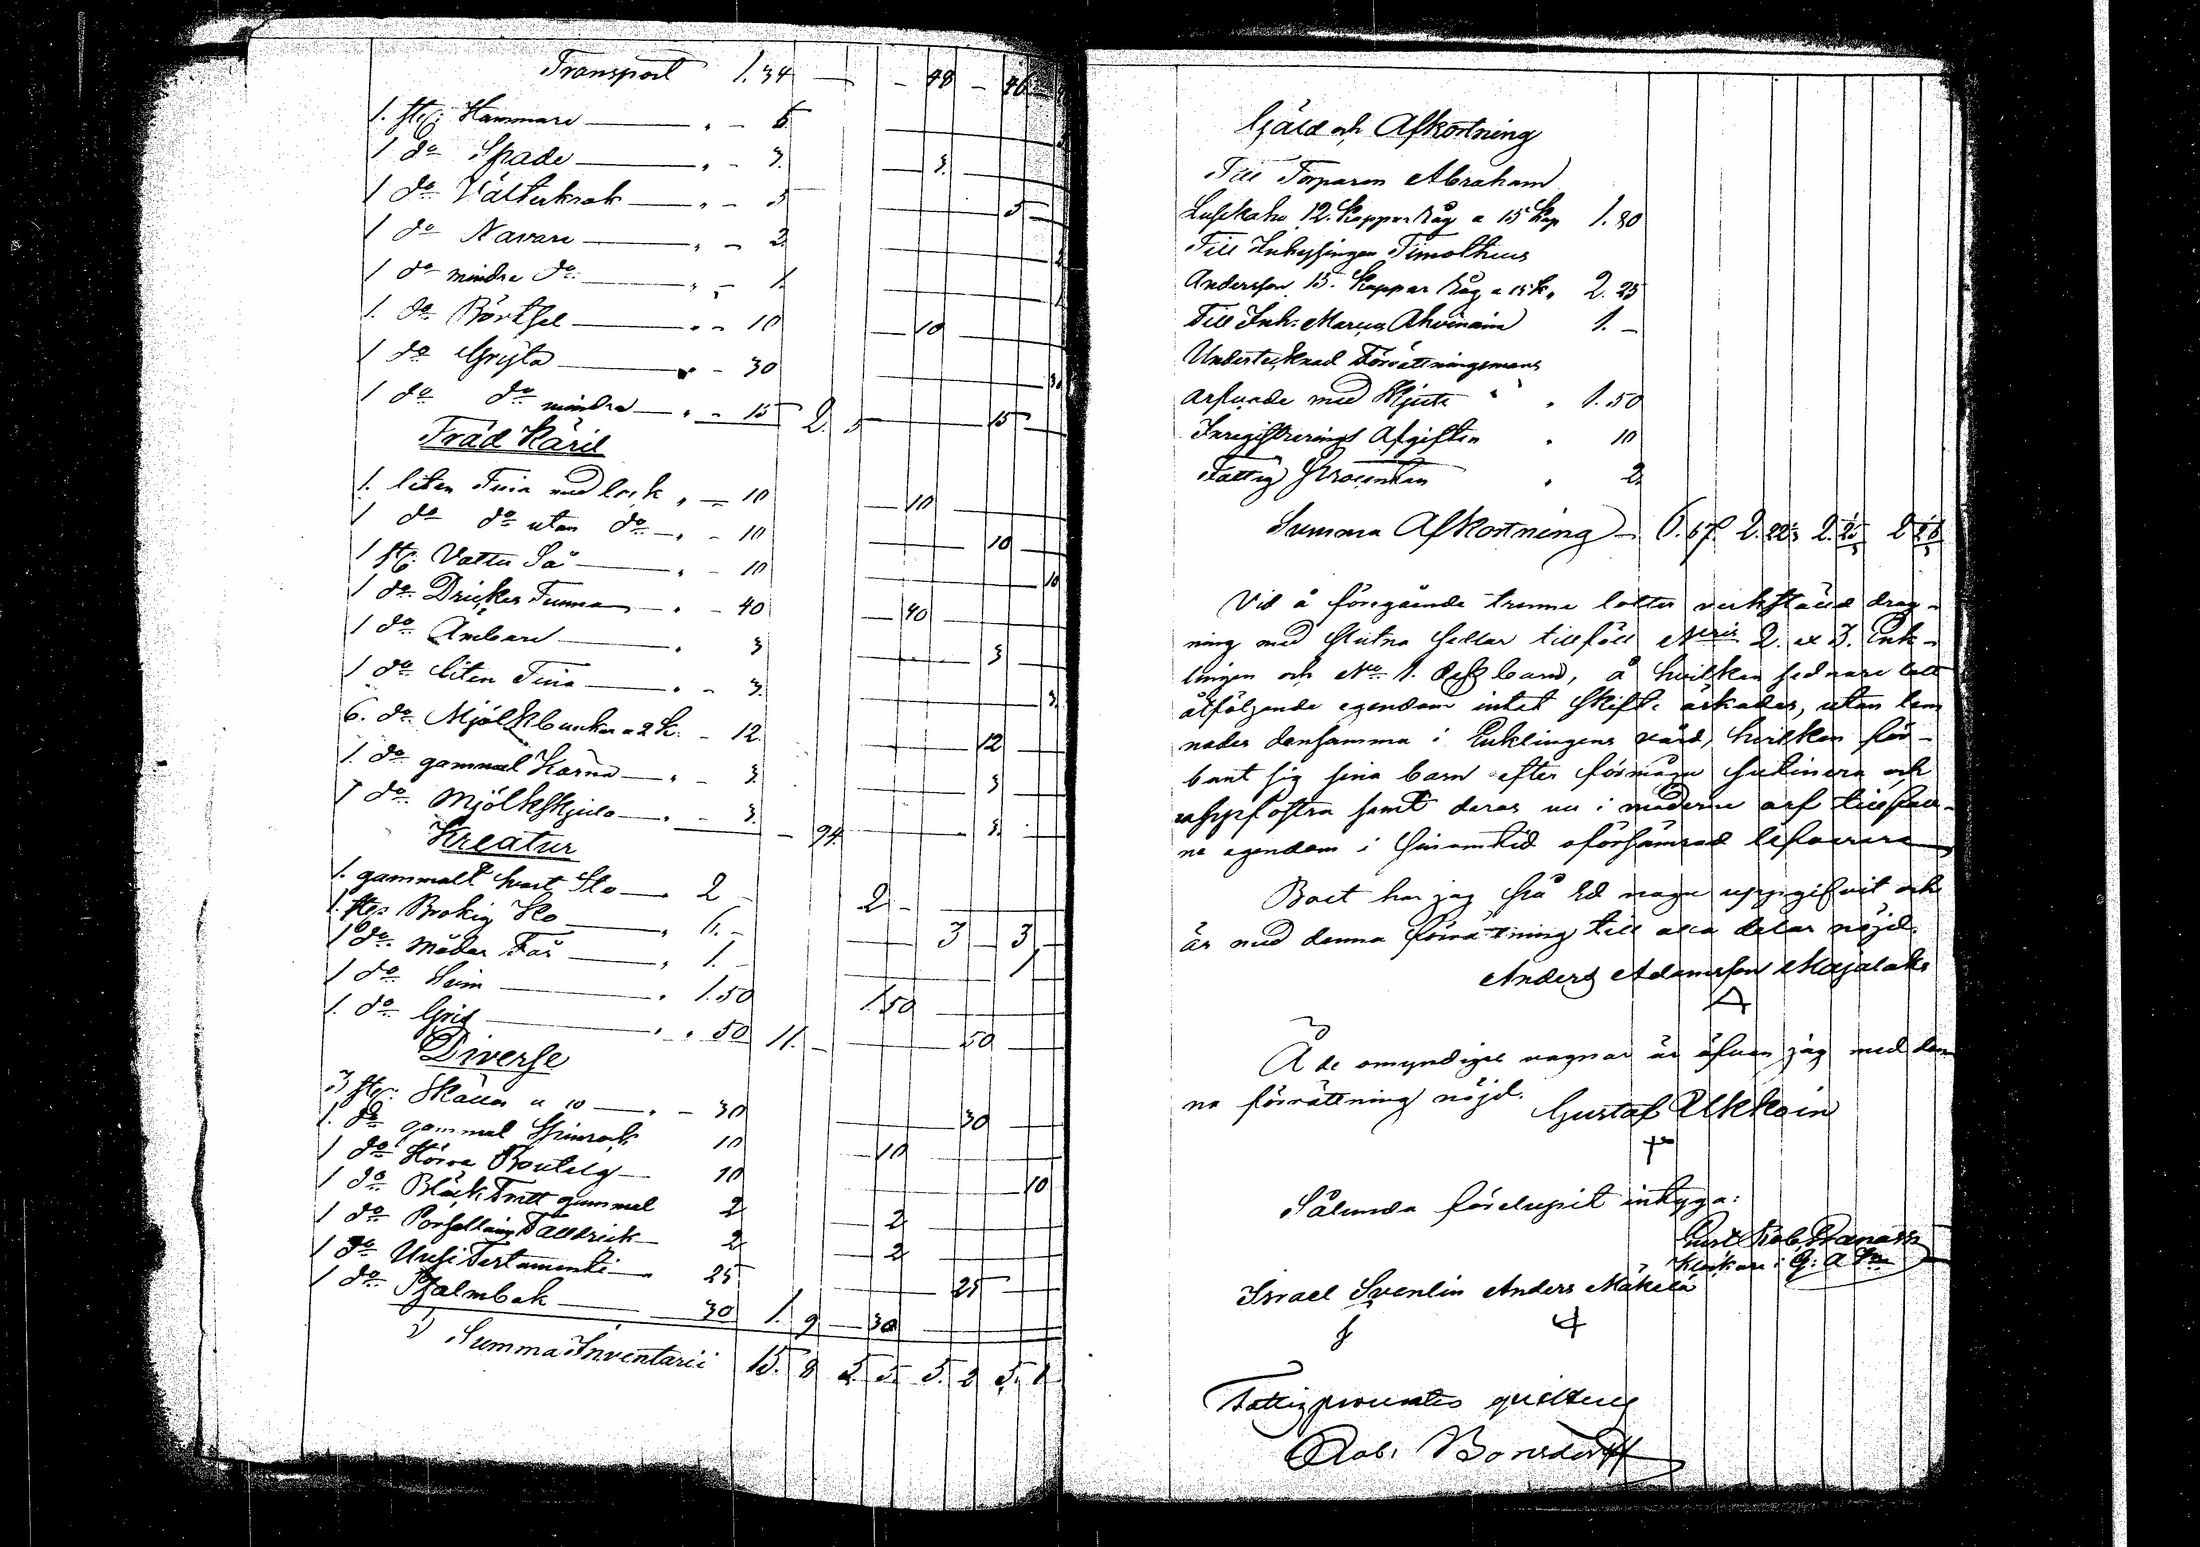 Transport 1. 34 — - 48 - 46
1. st: Hammare — " - 5
1 do Spade — " - 3. 3.
1 do Välterkrok — " - 5 5
1 do Navare — " - 2. 2
1 do mindre do — " - 1. 1
1. do Börtsel — " - 10 10
1 do Gryta — " - 30 30
1 do do mindre — " - 15 2. 5 15
Träd Käril
1. liten Tina med lock " - 10 10
1 do do utan do " - 10 10
1 st: Vattu Så — " - 10 10
1 do Dricks Tunna — " - 40 40
1 do Ämbare — " 3 3
1 do liten Tina — " - 3. 3.
6. do Mjölkbunkar a 2 k. - 12. 12
1. do gammal Kärna — " - 3. 3
1 do Mjölkskjula — " - 3. - 94. 3.
Kreatur
1. gammalt svart Sto — 2 - 2 -
1. st: Brokig Ko — " 6. - 3 3
1 do Moder Får — " 1. 1
1 do Svin — " 1.50 1.50
1. do Gris — " " 50 11. - 50
Diverse
3 st: Skålar a 10 — " - 30 30
1. do gammal Spinrock 10 10
1 do större Boutelg — 10 10
1 do Bläck Tratt gammal 2 2
1 do Porsellains Talldrick — 2 2
1 do Uusi Testamenti — 25 25
1 do Psalmbok — 30 1. 9 — 30
Summa Inventarii 15. 8 5. 5. 5. 2 5. 1
Gäld och Afkortning
Till Torparen Abraham
12. Kappar Råg a 15 Kop 1. 80
Till Inhysingen Timotheus
Andersson 15. Kappar Råg a 15 k. 2. 25
Till Inh: Maria Ahoinain 1. —
Undertecknad Förrättningsmans
arfvode med Skjuts " " 1. 50
Inregistrerings Afgiften " 10
Fattig Procenten " 2
Summa Afkortning — 6. 67 2. 22⅓ 2.
Vid å föregående trenne lotter verkställd drag-
ning med slutna sedlar tillföll Nris 2. et 3. Enk-
lingen och No 1. dess barn, å hvilken sednare lott
åtföljande egendom intet skifte äskades, utan lem
nades densamma i Enklingens vård, hvilken för-
bant sig sina barn efter förmåga sutinera och
uppfostra samt deras nu i möderne arf tillfall-
ne egendom i sinom tid oförsämrad lefverera
Boet har jag så Ed nage uppgifvit och
är med denna förrättning till alla delar nöjd.
Anders Adamsson Majalaks
Å de omyndiges vagnar är äfven jag med den-
na förrättning nöjd. Gustaf Ukkoin
Sålunda förelupit intyga:
Klockare i
Israel Svenlin Anders Mäkelä
Fattigprocentes qvitteras
Rob. Bonsdorff